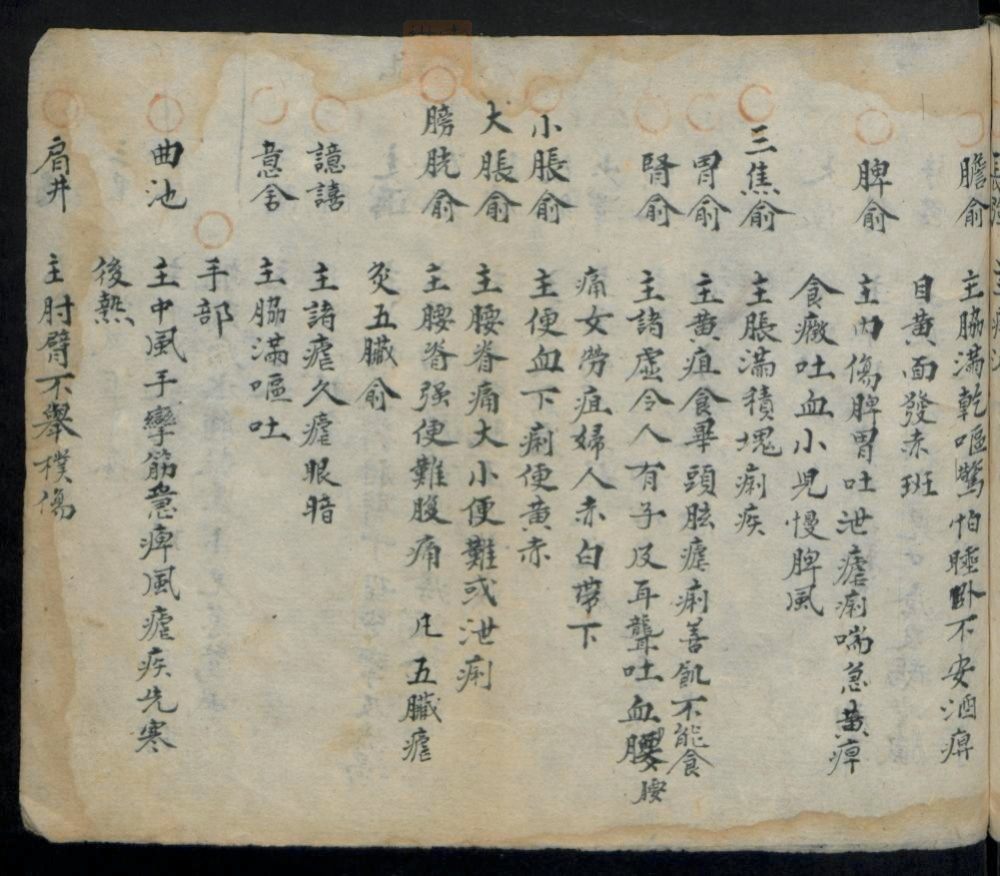 膽俞 主脇滿乾嘔驚怕睡卧不安酒疸
目黄面發赤斑
脾俞 主内傷脾胃吐泄瘧痢喘急黄疸
食癥吐血小兒慢脾風
三焦俞 主脹滿積塊痢疾
胃俞 主黄疸食畢頭眩瘧痢善飢不能食
腎俞 主諸虚令人有子及耳聾吐血腰腰
痛女勞疸婦人赤白帶下
小脹俞 主便血下痢便黄赤
大脹俞 主腰脊痛大小便難或泄痢
膀胱俞 主腰脊强便難腹痛 凡五臟瘧
灸五臟俞
譩譆 主諸瘧久瘧眼暗
意舍 主脇滿嘔吐
手部
曲池 主中風手攣筋急痺風瘧疾先寒
後熱
肩井 主肘臂不舉樸傷